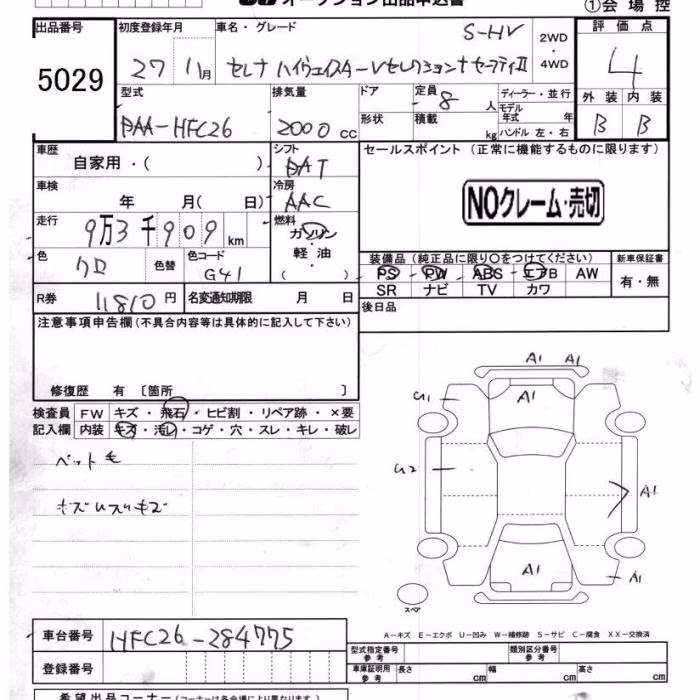 オークション出品申込書
①会場控
出品番号
5029
初度登録年月
27 11月
車名・グレード
S-HV
セレナ ハイウェイスターVセレクション+セーフティⅡ
2WD
・
4WD
評価点
4
外装 内装
B B
型式
DAA-HFC26
排気量
2000 CC
ドア
形状
定員 8 人
積載 kg
ディーラー・並行
モデル
年式 年
ハンドル 左・右
車歴
自家用・( )
シフト
DAT
セールスポイント (正常に機能するものに限ります)
NOクレーム・売切
車検
年 月( 日)
冷房
AAC
走行
9万3千909 km
燃料
ガソリン
・
軽油
( )
色
クロ
色替
色コード
G41
装備品 (純正品に限り○をつけてください)
PS PW ABS エアB AW
SR ナビ TV カワ
新車保証書
有・無
R券 11810円
名変通知期限 月 日
後日品
注意事項申告欄 (不具合内容等は具体的に記入して下さい)
修復歴 有 〔箇所 〕
検査員
記入欄
FW キズ・飛石・ヒビ割・リペア跡・×要
内装 キズ・汚レ・コゲ・穴・スレ・キレ・破レ
ペット毛
キズUスリキズ
A1 A1
U1
A1
U2
A1
A1
A1
スペア
A-キズ E-エクボ U-凹み W-補修跡 S-サビ C-腐食 XX-交換済
車台番号
HFC26-284775
登録番号
型式指定番号
参考
類別区分番号
参考
車庫証明用
参考
長さ cm
幅 cm
高さ cm
希望出品コーナー (コーナーは各会場により異なります。)